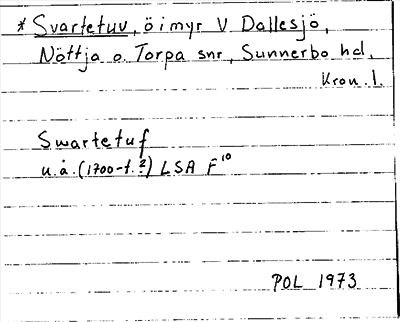 * Svartetuv, ö i myr V Dallesjö,
Nöttja o. Torpa snr, Sunnerbo hd,
Kron. l.
Swartetuf
u.å. (1700-t.?) LSA F¹⁰
POL 1973